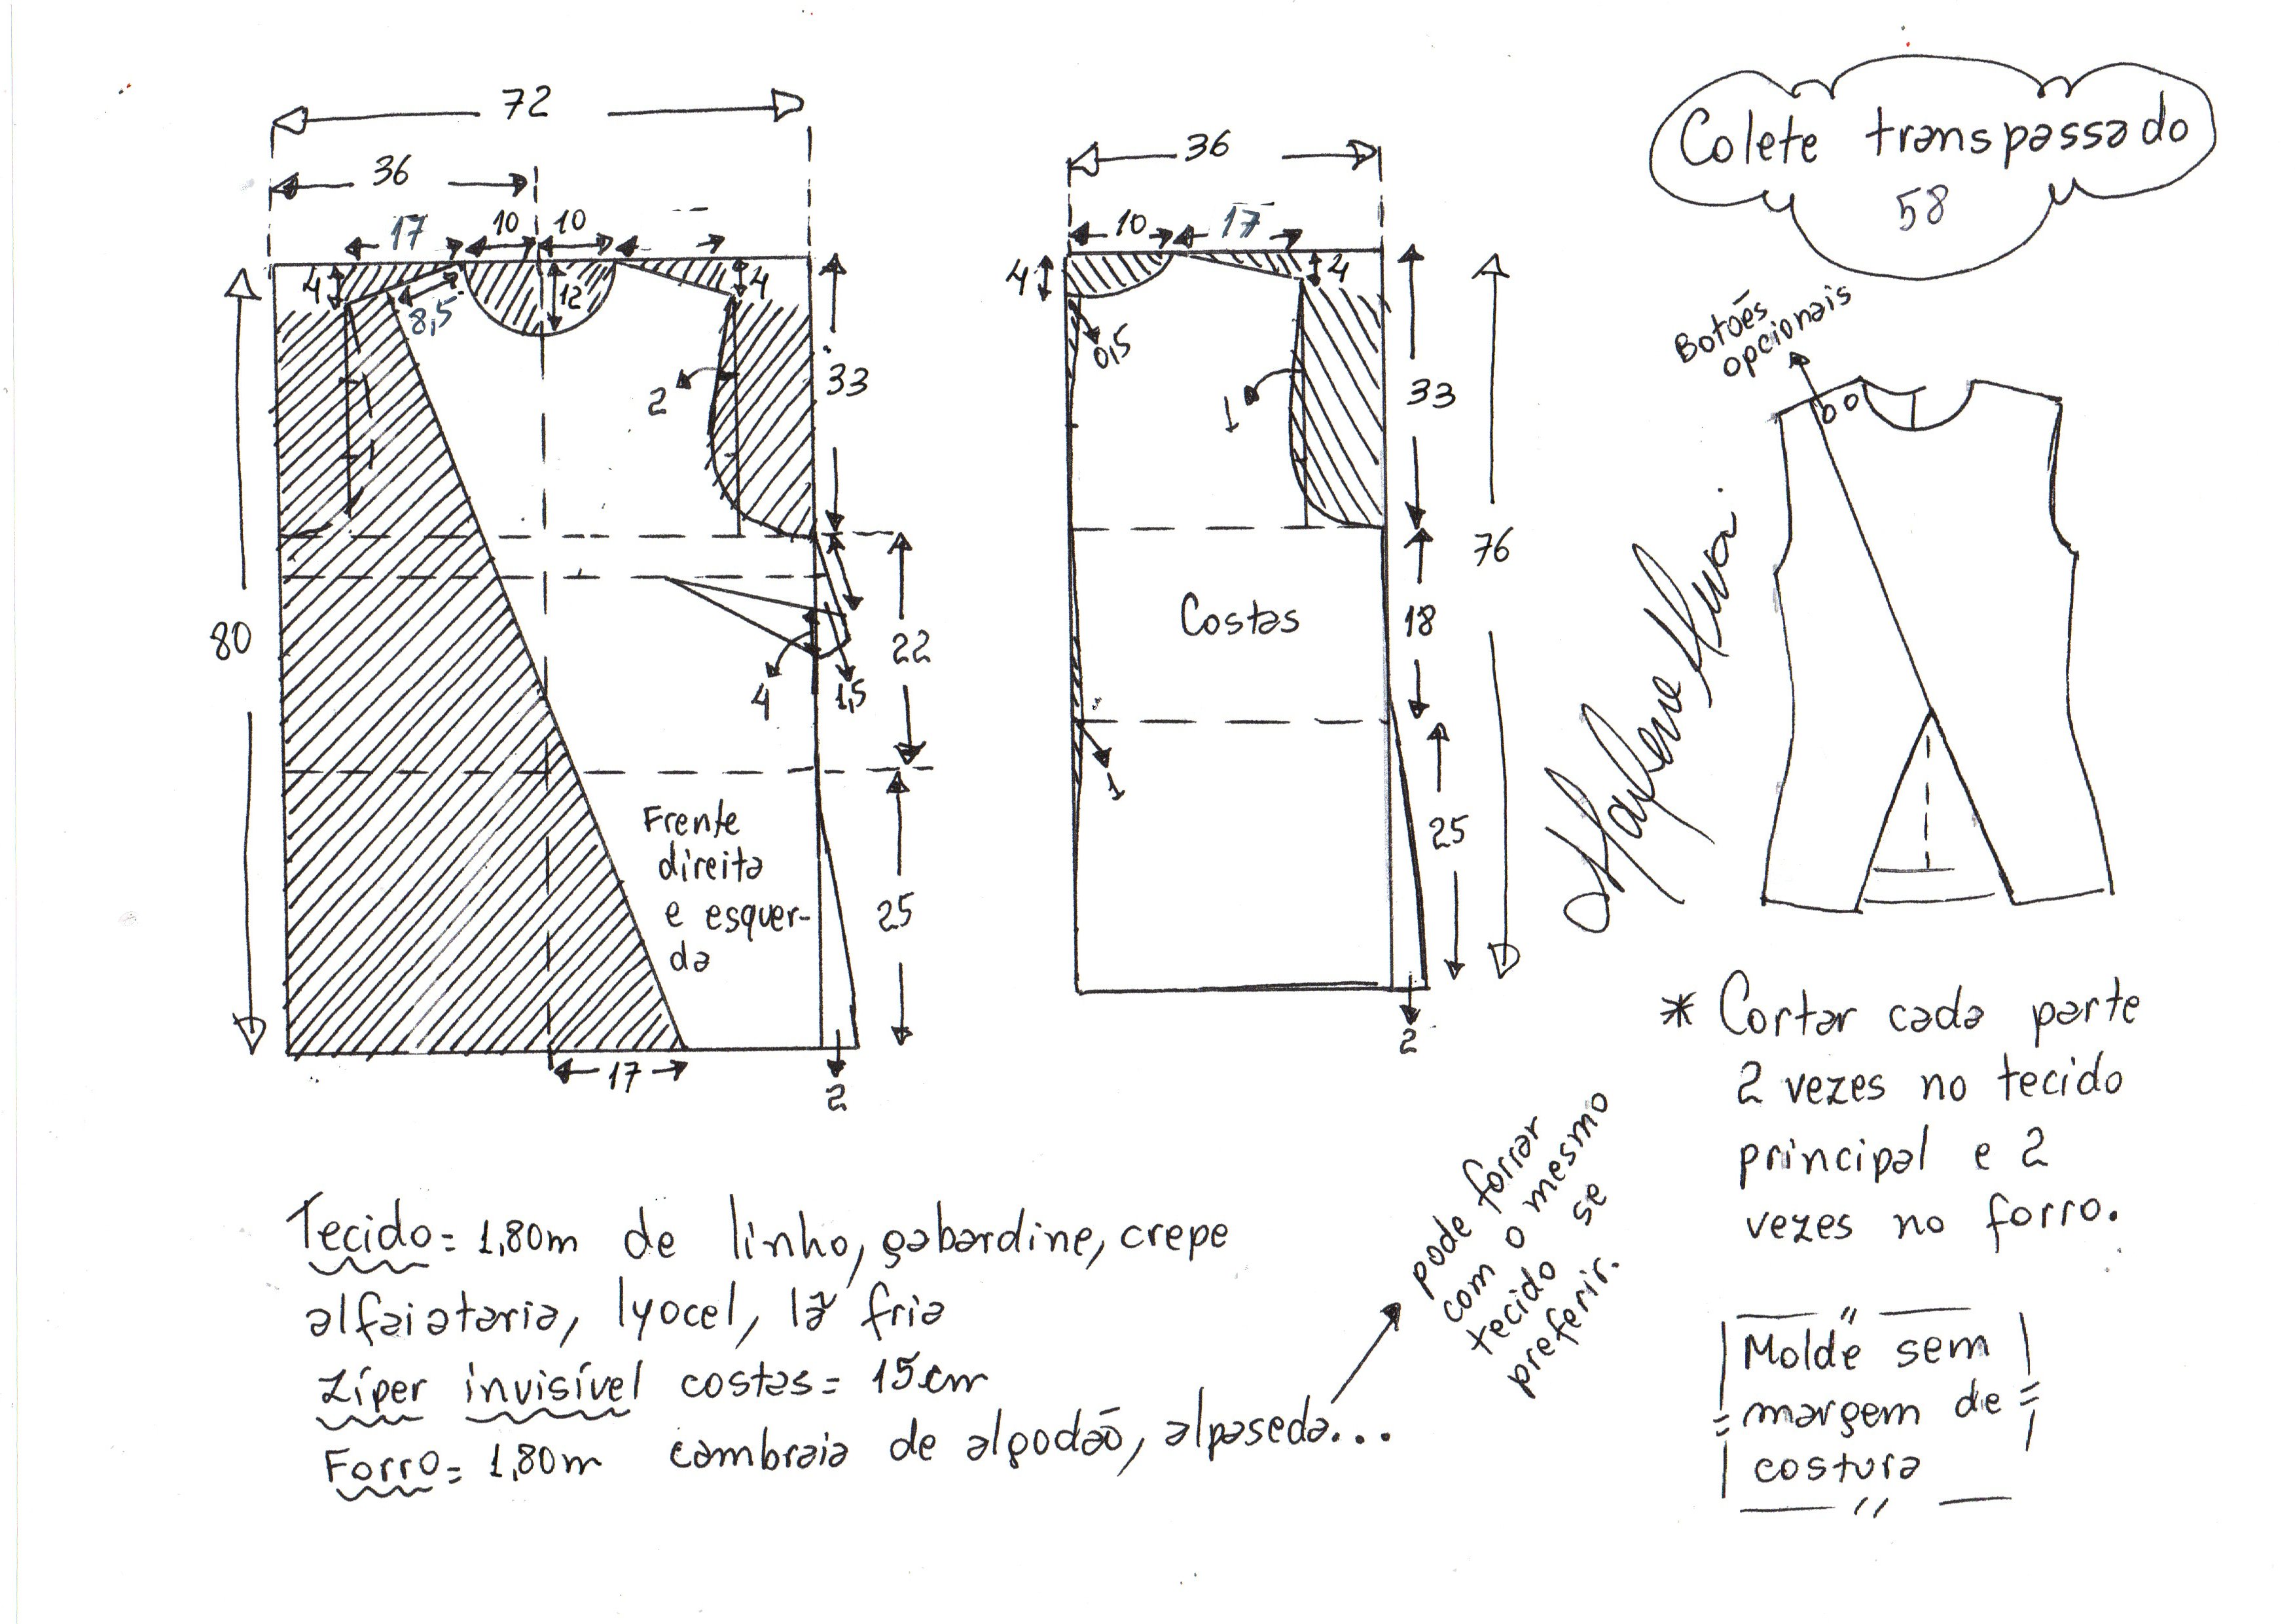 72
36
17
10
10
4
8,5
12
4
33
2
80
22
4
1,5
Frente
direita
e esquer-
da
25
17
2
36
10
17
4
4
0,5
1
33
76
Costas
18
1
25
2
Colete transpassado
58
Botões
opcionais
Marlene Mukai
* Cortar cada parte
2 vezes no tecido
principal e 2
vezes no forro.
Tecido = 1,80m de linho, gabardine, crepe
alfaiataria, lyocel, lã fria
Zíper invisível costas = 15cm
Forro = 1,80m cambraia de algodão, alpaseda...
pode forrar
com o mesmo
tecido se
preferir.
Molde sem
margem de
costura